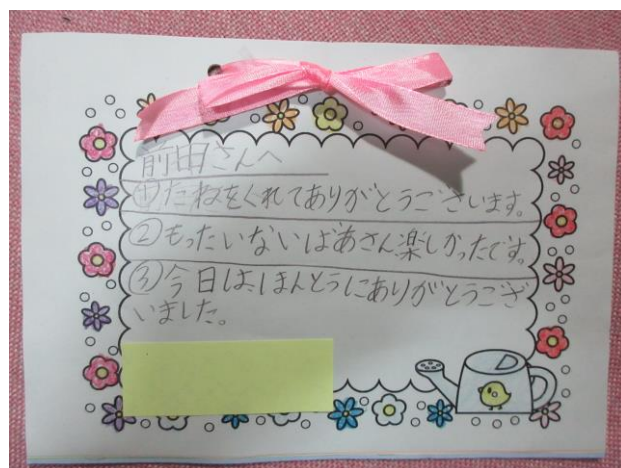 前田さんへ
①たねをくれてありがとうございます。
②もったいないばあさん楽しかったです。
③今日はほんとうにありがとうござ
いました。